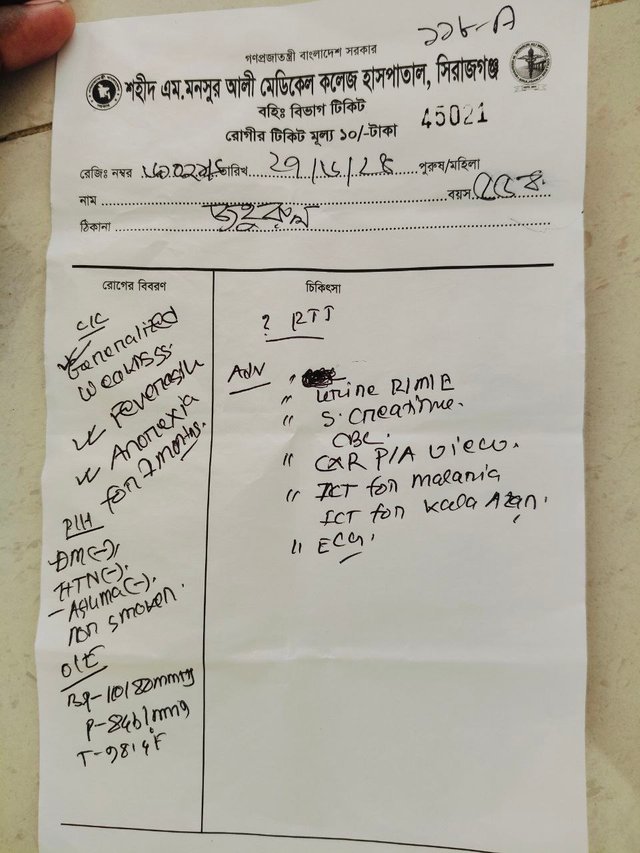 ১১৮-A
গণপ্রজাতন্ত্রী বাংলাদেশ সরকার
শহীদ এম.মনসুর আলী মেডিকেল কলেজ হাসপাতাল, সিরাজগঞ্জ
বহিঃ বিভাগ টিকিট
রোগীর টিকিট মূল্য ১০/-টাকা
45021
রেজিঃ নম্বর তারিখ পুরুষ/মহিলা
নাম বয়স
ঠিকানা
রোগের বিবরণ
C/C
Generalized
weakness.
Anorexia
for 2 months.
P/H
DM(-),
HTN(-).
Asthma(-).
non smoker.
O/E
BP-110/80mmHg
P-84b/min
T-98.4F
চিকিৎসা
Adv
" Urine R/M/E
" S. Creatinine.
CBC.
" CXR P/A view.
" ICT for malaria
ICT for Kala Azar.
" ECG.